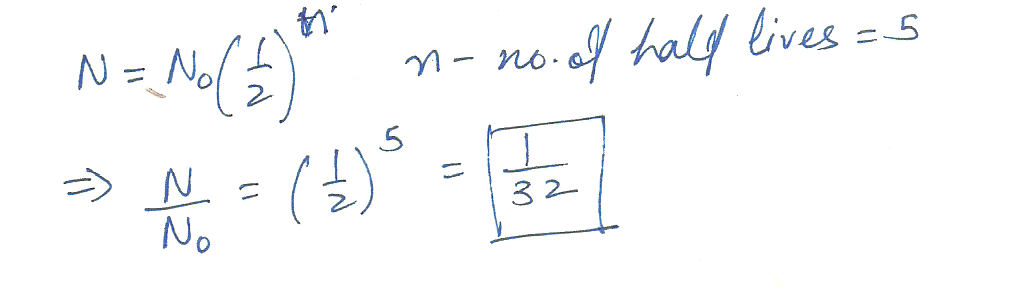 N = N₀(1/2)ⁿ n - no. of half lives = 5
⇒ N/N₀ = (1/2)⁵ = 1/32